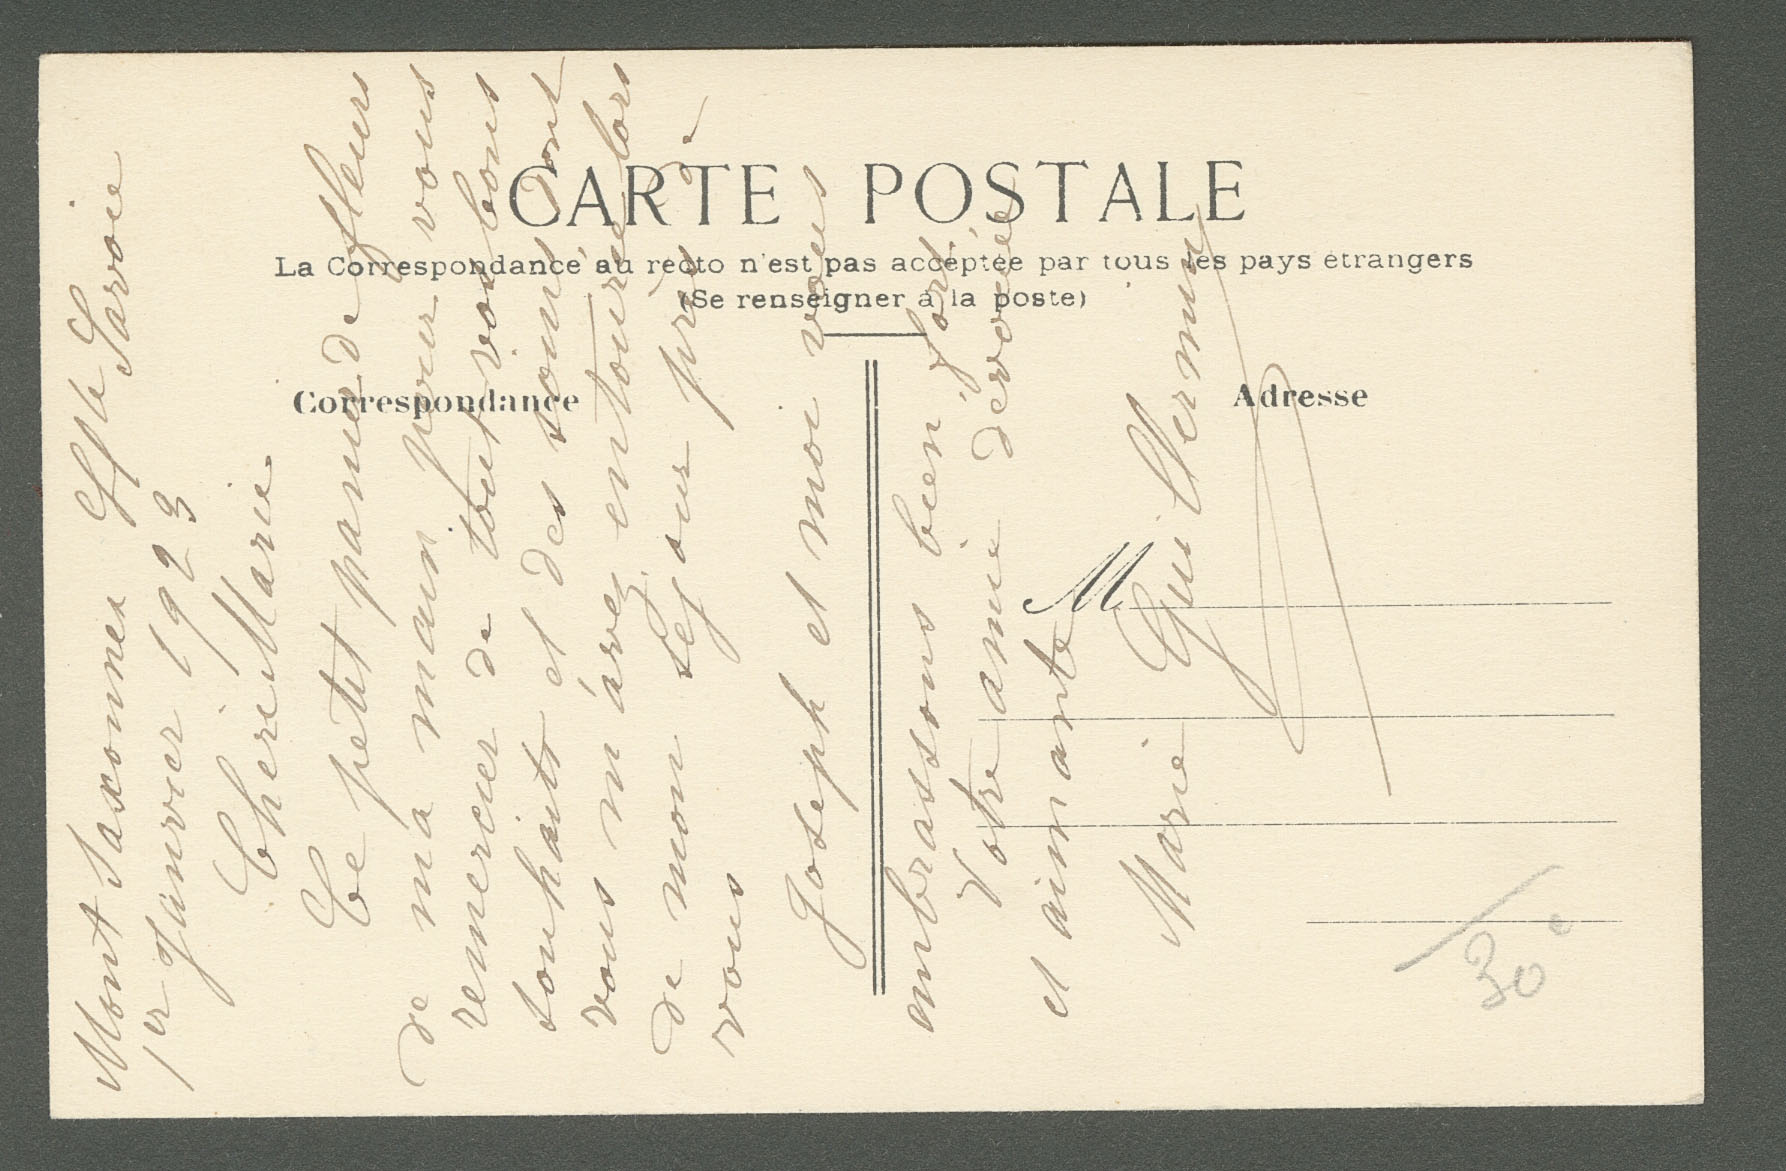 CARTE POSTALE
La Correspondance au recto n'est pas acceptée par tous les pays étrangers
(Se renseigner à la poste)
Correspondance
Adresse
M
Mont Saxonnex Hte Savoie
1er Janvier 1923
Cheri Marie
Ce petit panier de fleurs
de ma main pour vous
remercier de tout vos bons
souhaits et des soins dont
vous m'avez entouré lors
de mon séjour près de
vous
Joseph et moi vous
embrassons bien fort
Votre amie dévouée
et aimante
Marie Guillermin
30c